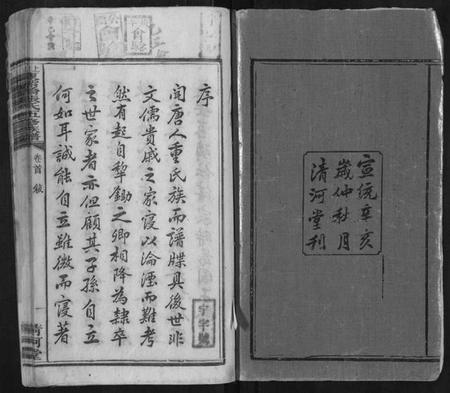 宣統辛亥
歲仲秋月
清河堂刊
序
聞唐人重氏族而譜牒具後世非
文儒貴戚之家寖以淪湮而難考
然有起自犁鋤之卿相降為隸卒
之世家者亦但願其子孫自立
何如耳誠能自立雖微而寖著
卷首 序
清河堂
宇字號